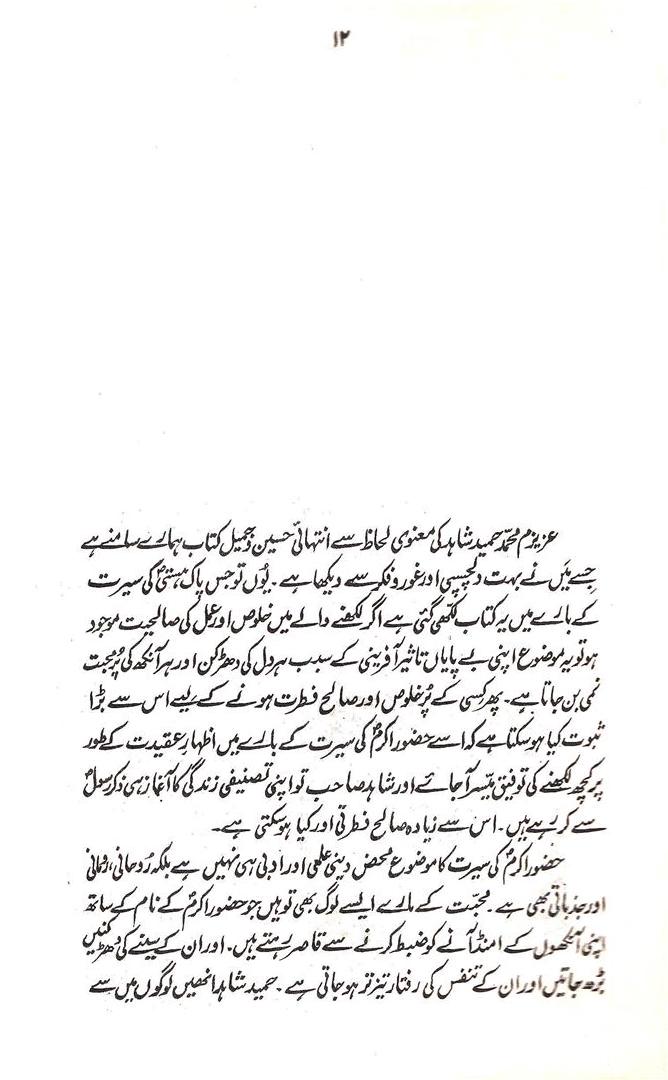 ۱۲
عزیزم محمّد حمید شاہد کی معنوی لحاظ سے انتہائی حسین و جمیل کتاب ہمارے سامنے ہے
جسے میَں نے بہت دلچسپی اور غور و فکر سے دیکھا ہے۔ یوُں تو جس پاک ہستیؐ کی سیرت
کے بارے میں یہ کتاب لکھی گئی ہے اگر لکھنے والے میں خلوص اور عمل کی صالحیت موجود
ہو تو یہ موضوع اپنی بے پایاں تاثیر آفرینی کے سبب ہر دل کی دھڑکن اور ہر آنکھ کی پُر محبت
نمی بن جاتا ہے۔ پھر کسی کے پُر خلوص اور صالح فطرت ہونے کے لیے اس سے بڑا
ثبوت کیا ہو سکتا ہے کہ اسے حضور اکرمؐ کی سیرت کے بارے میں اظہارِ عقیدت کے طور
پر کچھ لکھنے کی توفیق میّسر آ جائے اور شاہد صاحب تو اپنی تصنیفی زندگی کا آغاز ہی ذکر رسولؐ
سے کر رہے ہیں۔ اس سے زیادہ صالح فطرتی اور کیا ہو سکتی ہے۔
حضور اکرمؐ کی سیرت کا موضوع محض دینی علمی اور ادبی ہی نہیں ہے بلکہ رُوحانی، رومانی
اور جذباتی بھی ہے۔ محبّت کے مارے ایسے لوگ بھی تو ہیں جو حضور اکرمؐ کے نام کے ساتھ
اپنی آنکھوں کے امنڈ آنے کو ضبط کرنے سے قاصر رہتے ہیں۔ اور ان کے سینے کی دھڑکنیں
بڑھ جاتیں اور ان کے تنفس کی رفتار تیز تر ہو جاتی ہے۔ حمید شاہد انھیں لوگوں میں سے